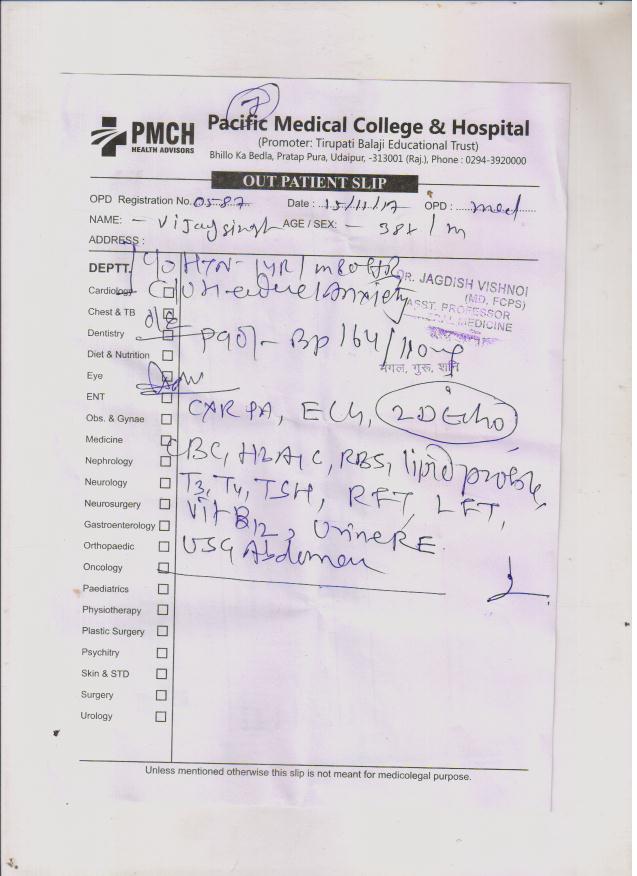 7
PMCH
HEALTH ADVISORS
Pacific Medical College & Hospital
(Promoter: Tirupati Balaji Educational Trust)
Bhillo Ka Bedla, Pratap Pura, Udaipur, -313001 (Raj.), Phone : 0294-3920000
OUT PATIENT SLIP
OPD Registration No. 0587 Date : 15/11/17 OPD : med
NAME: - Vijaysingh AGE / SEX: - 38y / m
ADDRESS :
DEPTT. HTN - 1yr
DR. JAGDISH VISHNOI
(MD, FCPS)
ASST. PROFESSOR
MEDICINE
मंगल, गुरु, शनि
Cardiology Anxiety
Chest & TB O/E
Dentistry P90/- BP 164/110
Diet & Nutrition
Eye
ENT CXR PA, ECG, 2D Echo
Obs. & Gynae
Medicine CBC, HbA1C, RBS, lipid profile,
Nephrology
Neurology T3, T4, TSH, RFT, LFT,
Neurosurgery Vit B12, Urine RE
Gastroenterology
Orthopaedic USG Abdomen
Oncology
Paediatrics
Physiotherapy
Plastic Surgery
Psychitry
Skin & STD
Surgery
Urology
Unless mentioned otherwise this slip is not meant for medicolegal purpose.